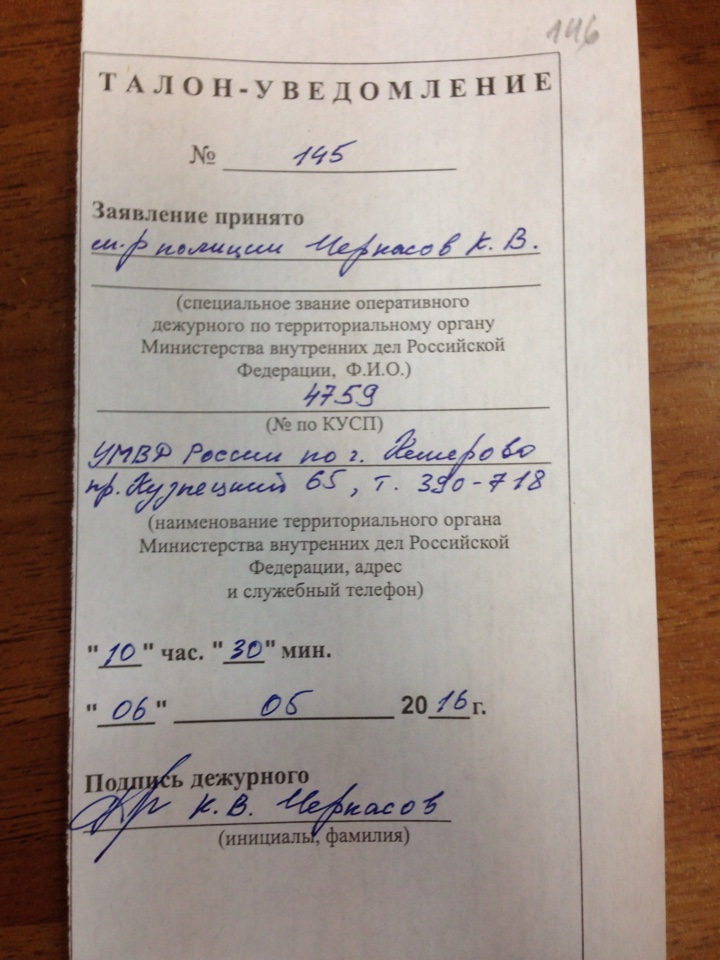 146
ТАЛОН-УВЕДОМЛЕНИЕ
№ 145
Заявление принято
м-р полиции Черкасов К. В.
(специальное звание оперативного
дежурного по территориальному органу
Министерства внутренних дел Российской
Федерации, Ф.И.О.)
4759
(№ по КУСП)
УМВД России по г. Кемерово
пр. Кузнецкий 65, т. 390-718
(наименование территориального органа
Министерства внутренних дел Российской
Федерации, адрес
и служебный телефон)
"10" час. "30" мин.
"06" 05 2016 г.
Подпись дежурного
К. В. Черкасов
(инициалы, фамилия)